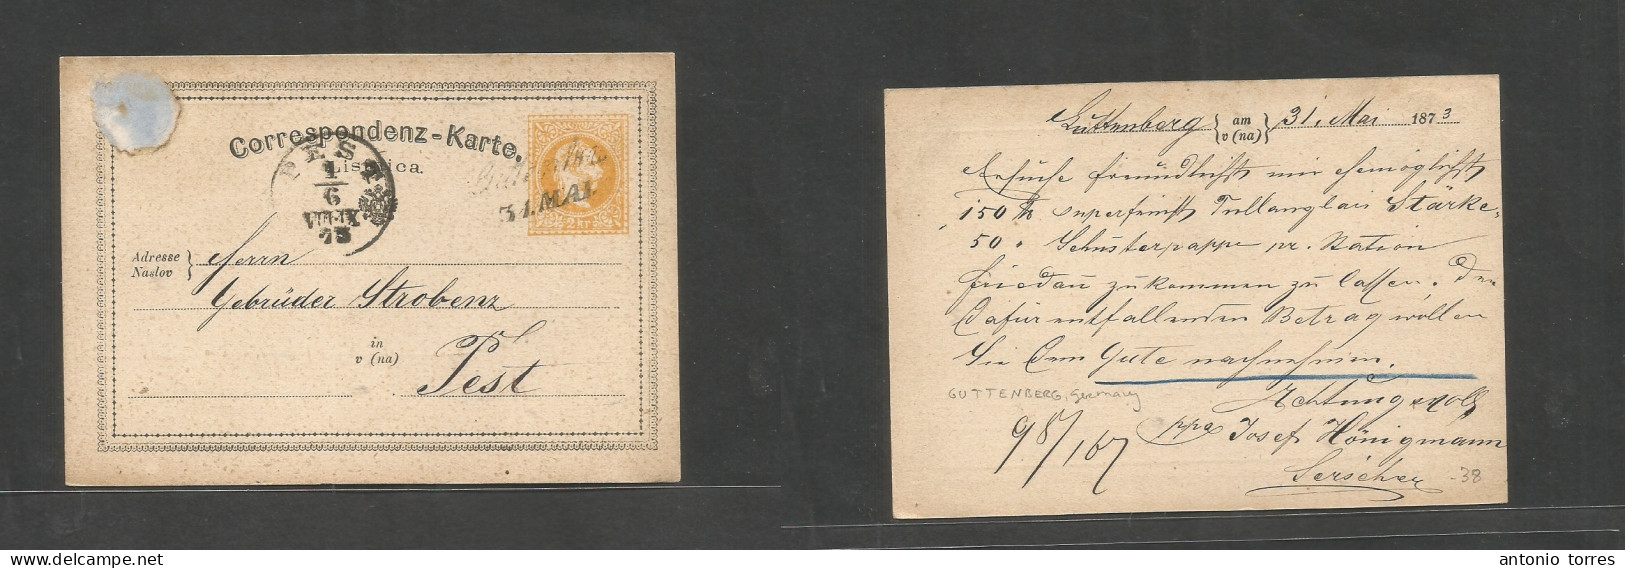 Correspondenz-Karte.
Listnica.
PEST
1
6
VIII-IX
73
31. MAI.
2 KR
Adresse
Naslov
Herrn
Gebrüder Strobenz
in
v (na)
Pest
Luttenberg am v (na) 31. Mai 1873
Ersuche freundlichst mir
150 superfeinst Stärke,
50 " Schusterpappe pr. Station
Friedau zukommen zu lassen. Den
dafür entfallenden Betrag wollen
Sie dem Gute nachnehmen.
GUTTENBERG, Germany
Achtungsvoll
98/167
ppa Josef Hönigmann
-38
antonio torres